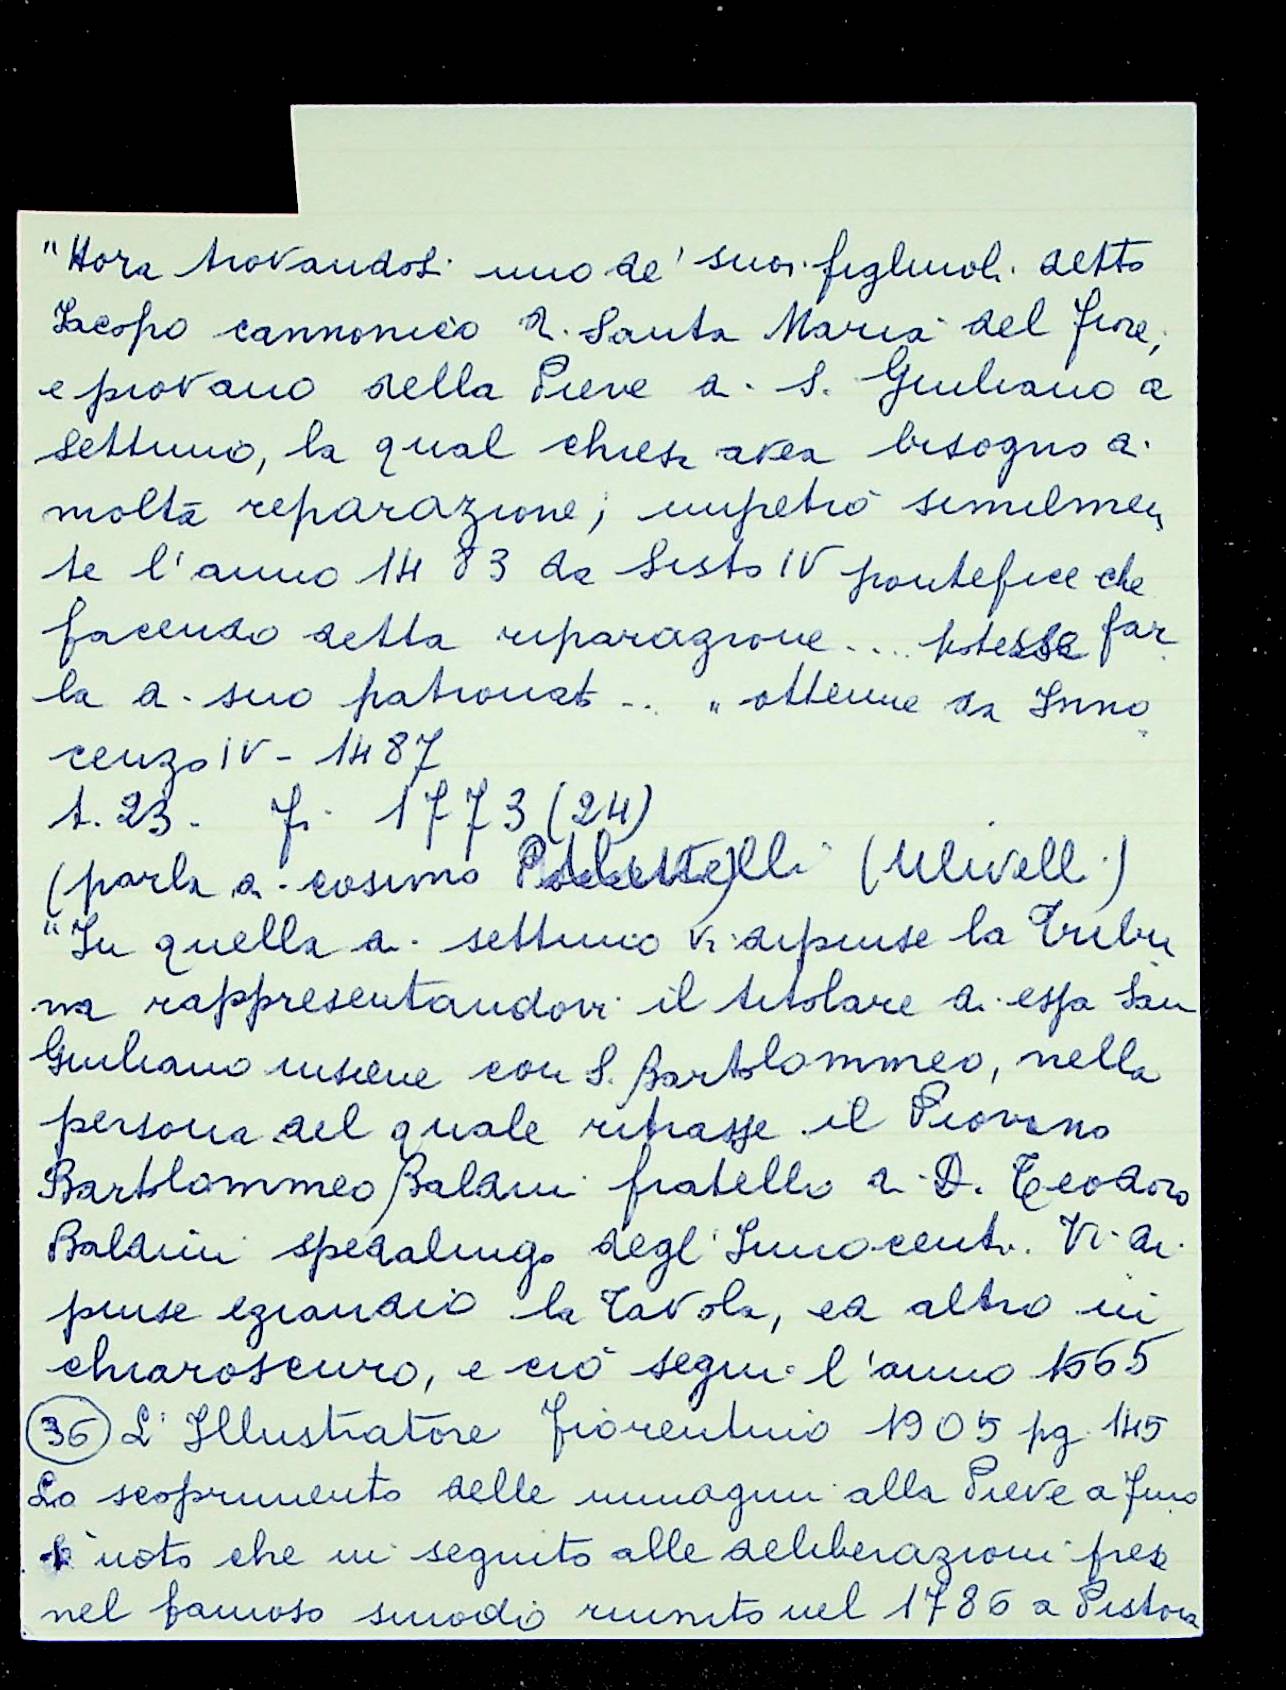 "Hora trovandosi uno de' suoi figliuoli detto
Iacopo cannonico di Santa Maria del Fiore,
e piovano della Pieve di S. Giuliano a
Settimo, la qual chiesa avea bisogno di
molta reparazione; impetrò similmen
te l'anno 1483 da Sisto IV pontefice che
facendo detta riparazione.... potesse far
la di suo patronato... " ottenne da Inno
cenzo IV - 1487
t. 23. Fi. 1773 (24)
(parla di Cosimo (Ulivelli)
"In quella di Settimo vi dipinse la Tribu
na rappresentandovi il titolare di essa San
Giuliano insieme con S. Bartolommeo, nella
persona del quale ritrasse il Piovano
Bartolommeo Baldini fratello di D. Teodoro
Baldini spedalingo degl'Innocenti. Vi di
pinse eziandio la Tavola, ed altro in
chiaroscuro, e ciò seguì l'anno 1665
(36) L'Illustratore Fiorentino 1905 pg. 145
Lo scoprimento delle immagini alla Pieve a
È noto che in seguito alle deliberazioni prese
nel famoso sinodo riunito nel 1786 a Pistoia